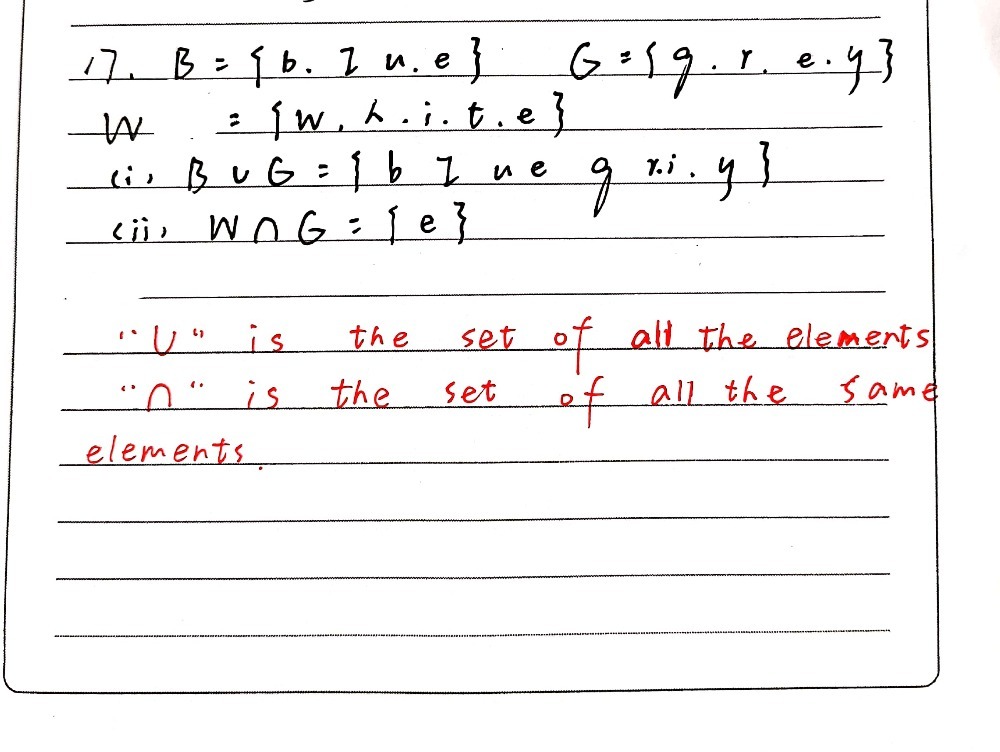 17. B = {b. l u. e} G = {g. r. e. y}
W = {w. h. i. t. e}
(i) B ∪ G = {b l u e g r. i. y}
(ii) W ∩ G = {e}
"∪" is the set of all the elements
"∩" is the set of all the same
elements.